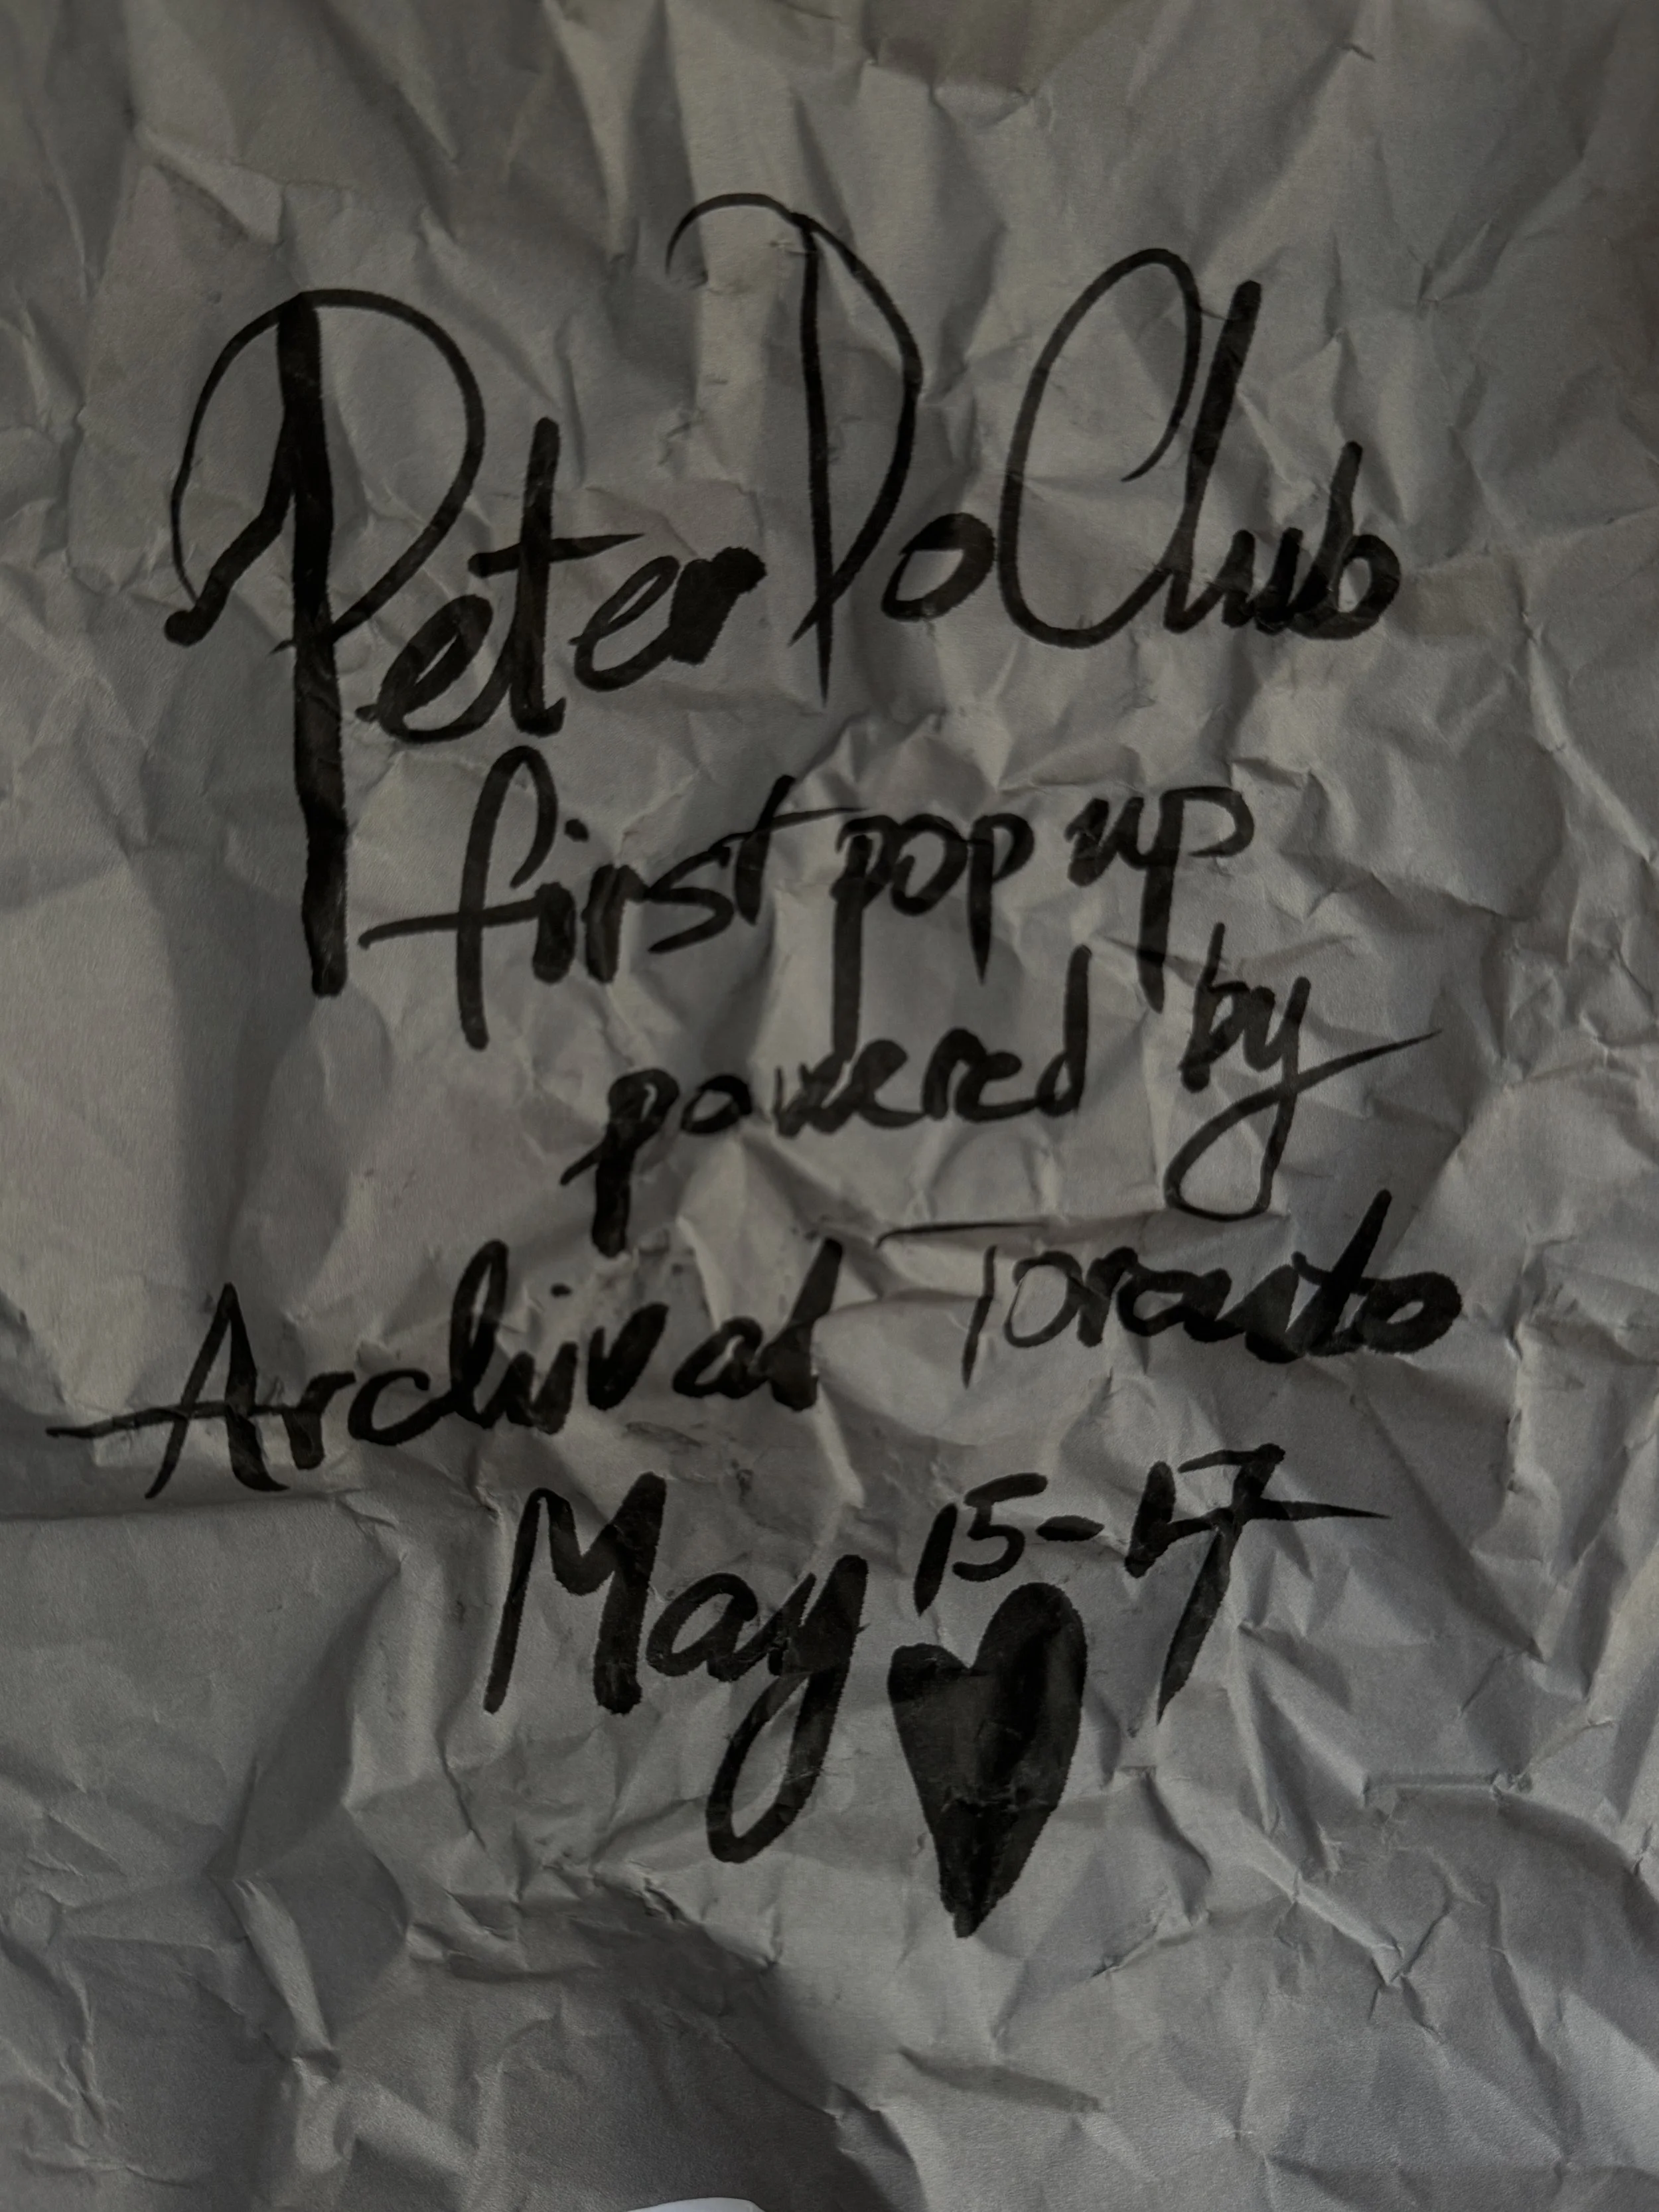 Peter Do Club
first pop up
powered by
Archival Toronto
May 15-17